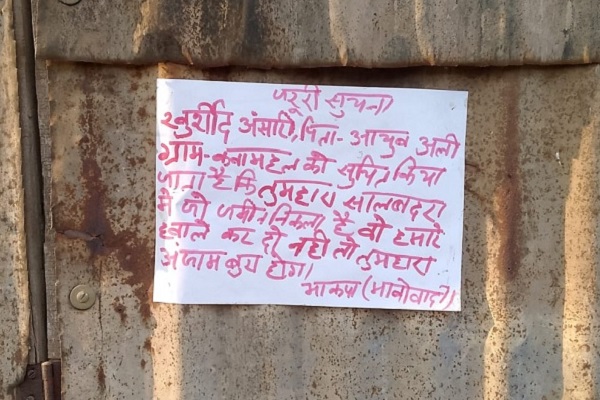 जरूरी सुचना
खुर्शीद अंसारी, पिता- आयुब अली
ग्राम- कवामहल को सुचित किया
जाता है कि तुमहारा सालबदरा
मे जो जमीन निकला है वो हमारे
हवाले कर दो नही तो तुमहारा
अंजाम बुरा होगा।
भाकपा (माओवादी)